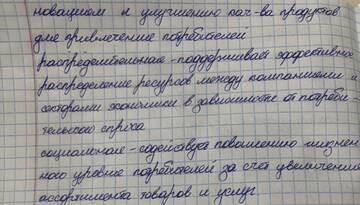 новациям и улучшению кач-ва продуктов
для привлечение потребителей
распределительная - поддерживает эффективное
распределение ресурсов между компаниями и
секторами экономики в зависимости от потреби
тельского спроса
социальная - содействует повышению жизнен
ного уровня потребителей за счёт увеличения
ассортимента товаров и услуг